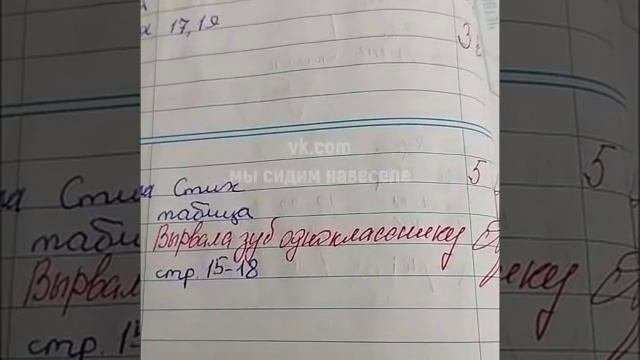 17, 19
3
vk.com
мы сидим навеселе
Стих 5
таблица
Вырвала зуб однокласснику
стр. 15-18